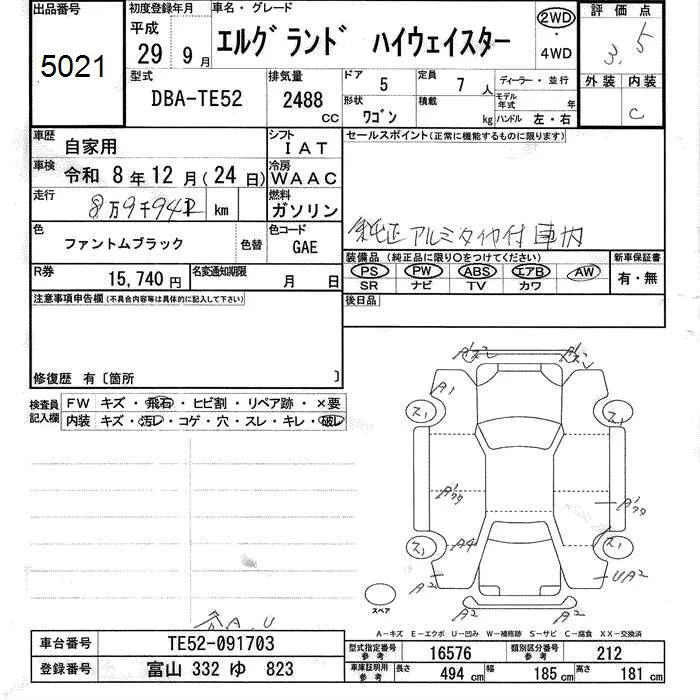 出品番号
5021
初度登録年月
平成
29 9月
車名・グレード
エルグランド ハイウェイスター
2WD
・
4WD
評価点
3.5
外装 内装
C
型式
DBA-TE52
排気量
2488
cc
ドア
5
定員
7人
ディーラー・並行
形状
ワゴン
積載
kg
モデル年式
年
ハンドル 左・右
車歴
自家用
シフト
IAT
セールスポイント(正常に機能するものに限ります)
車検
令和 8年12月(24日)
冷房
WAAC
走行
km
燃料
ガソリン
純正アルミタイヤ付 車内
色
ファントムブラック
色替
色コード
GAE
装備品(純正品に限り〇をつけてください)
新車保証書
PS PW ABS エアB AW
SR ナビ TV カワ
有・無
R券
15,740円
名変通知期限
月 日
後日品
注意事項申告欄(不具合内容等は具体的に記入して下さい)
修復歴 有〔箇所 〕
検査員記入欄
FW キズ・飛石・ヒビ割・リペア跡・×要
内装 キズ・汚レ・コゲ・穴・スレ・キレ・破レ
A1
ス1 ス1
ス1 ス1
A4
A2 UA2
A2 A2
スペア
A-キズ E-エクボ U-凹み W-補修跡 S-サビ C-腐食 XX-交換済
車台番号
TE52-091703
登録番号
富山 332 ゆ 823
型式指定番号
参考
16576
類別区分番号
参考
212
車庫証明用
参考
長さ
494 cm
幅
185 cm
高さ
181 cm